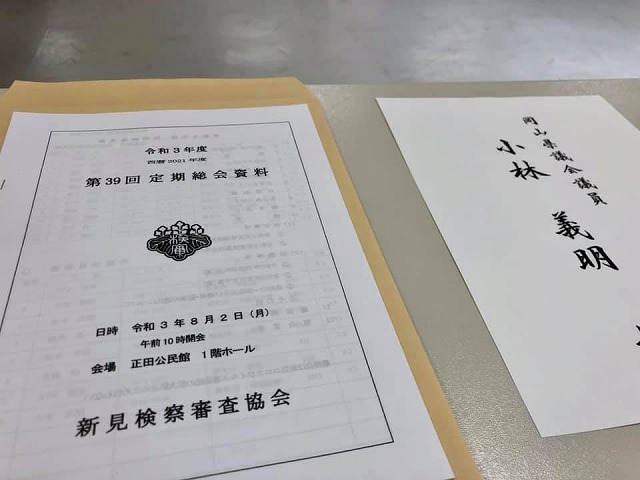 令和3年度
西暦2021年度
第39回定期総会資料
日時 令和3年8月2日(月)
午前10時開会
会場 正田公民館 1階ホール
新見検察審査協会
岡山県議会議員
小林 義明